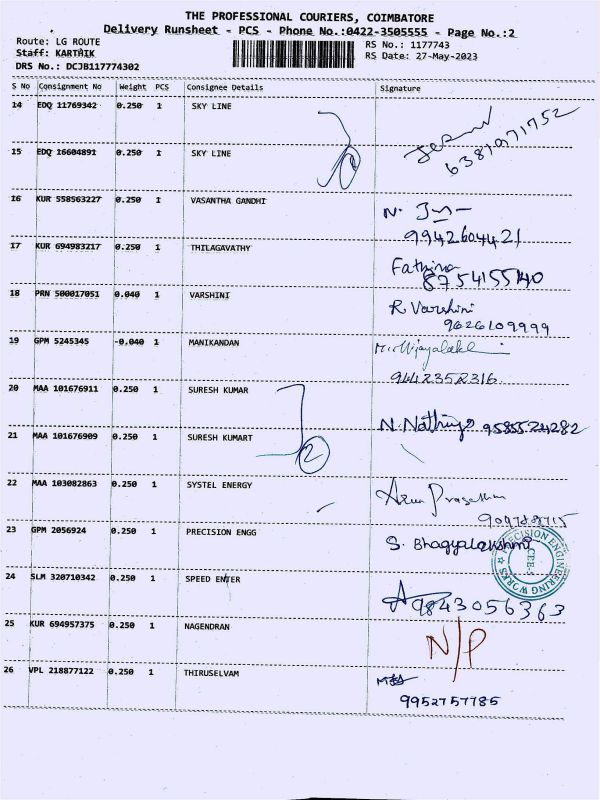 THE PROFESSIONAL COURIERS, COIMBATORE
Delivery Runsheet - PCS - Phone No.:0422-3505555 - Page No.:2
Route: LG ROUTE
RS No.: 1177743
Staff: KARTHIK
RS Date: 27-May-2023
DRS No.: DCJB117774302
S No Consignment No Weight PCS Consignee Details Signature
14 EDQ 11769342 0.250 1 SKY LINE
6381971752
15 EDQ 16604891 0.250 1 SKY LINE
16 KUR 558563227 0.250 1 VASANTHA GANDHI N.
9942604421
17 KUR 694983217 0.250 1 THILAGAVATHY Fathima
8754155140
18 PRN 500017051 0.040 1 VARSHINI R Varshini
9626109999
19 GPM 5245345 -0.040 1 MANIKANDAN Vijayalakshmi
9442352316
20 MAA 101676911 0.250 1 SURESH KUMAR
N. Nathiya 9585524282
21 MAA 101676909 0.250 1 SURESH KUMART
2
22 MAA 103082863 0.250 1 SYSTEL ENERGY Arun Prasath
9097888715
23 GPM 2056924 0.250 1 PRECISION ENGG S. Bhagyalakshmi
PRECISION ENGINEERING WORKS
CBE-5
24 SLM 320710342 0.250 1 SPEED ENTER
9843056363
25 KUR 694957375 0.250 1 NAGENDRAN N/P
26 VPL 218877122 0.250 1 THIRUSELVAM
9952757785